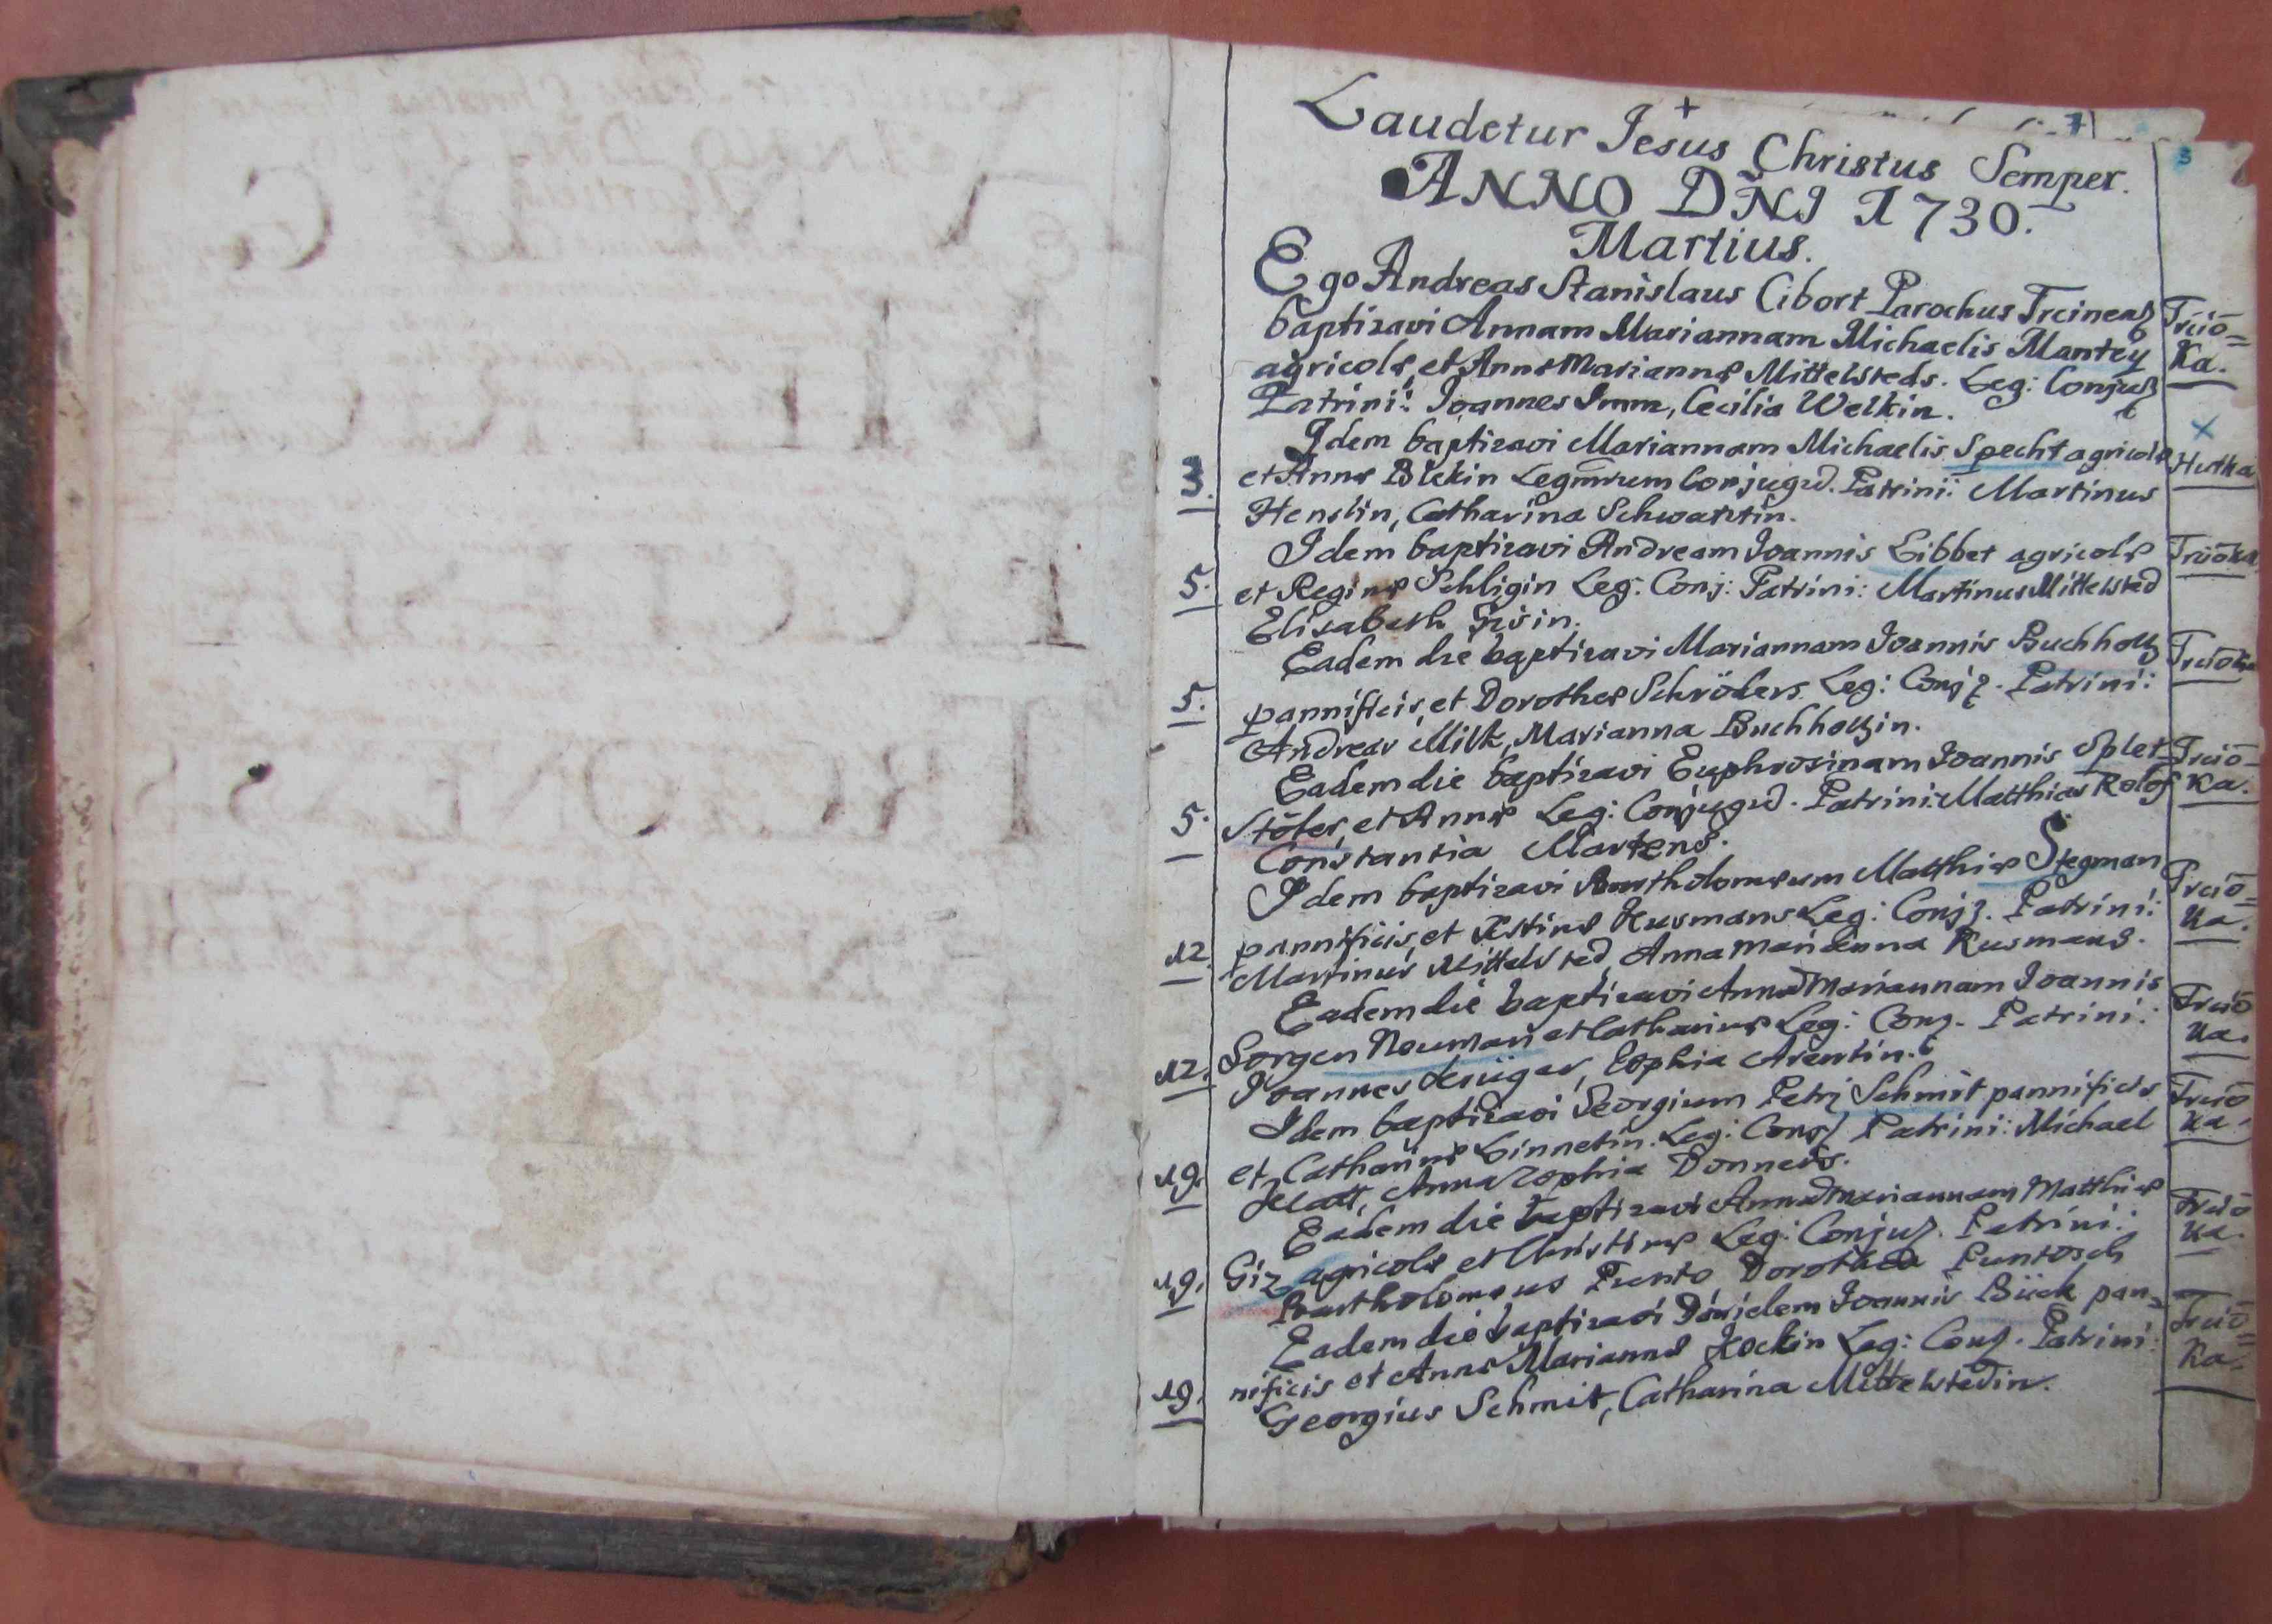 Laudetur Jesus Christus Semper.
ANNO DÑI 1730.
Martius.
Ego Andreas Stanislaus Cibort Parochus Trcinens
Trciō=
baptizavi Annam Mariannam Michaelis Mantey
Ka.
agricolæ, et Annæ Mariannæ Mittelsteds. Leg: Conjug
Patrini: Joannes Imm, Cecilia Welkin.
Idem baptizavi Mariannam Michaelis Specht agricolæ
Hutka
3. et Annæ Blekin Legmrum Conjugū. Patrini: Martinus
Henslin, Catharina Schwartzin.
Idem baptizavi Andream Joannis Libbet agricolæ
Trciōka
5. et Reginæ Schligin Leg: Conj: Patrini: Martinus Mittelsted
Elisabeth Gisin.
Eadem die baptizavi Mariannam Joannis Buchholtz
Trciōka
5. pannificis, et Dorotheæ Schröders Leg: Conj. Patrini:
Andreas Milk, Marianna Buchholtzin.
Eadem die baptizavi Euphrosinam Joannis Splet=
Trciō=
Ka.
5. Stöter, et Annæ Leg: Conjugū. Patrini: Matthias Rolof
Constantia Martens.
Idem baptizavi Bartholomæum Matthiæ Stegman
Trciō=
Ka.
12. pannificis, et Kusmans Leg: Conj. Patrini:
Martinus Mittelsted, Anna Marianna Kusmans.
Eadem die baptizavi Annā Mariannam Joannis
Trciō
Ka.
12. Sorgen Neuman et Catharinæ Leg: Conj. Patrini:
Joannes Krüger, Sophia Arentin.
Idem baptizavi Georgium Petri Schmit pannificis
Trciō
Ka.
19. et Catharinæ Linnetin. Leg: Conj Patrini: Michael
Anna Sophia Donners.
Eadem die baptizavi Annā Mariannam Matthiæ
Trciō
Ka.
19. Giz agricolæ et Christinæ Leg: Conjug. Patrini:
Bartholomæus Punto Dorothea Puntosch
Eadem die baptizavi Danielem Joannis Bück pan=
Trciō=
Ka.
19. nificis et Annæ Mariannæ Kockin Leg: Conj. Patrini:
Georgius Schmit, Catharina Mittelstedin.